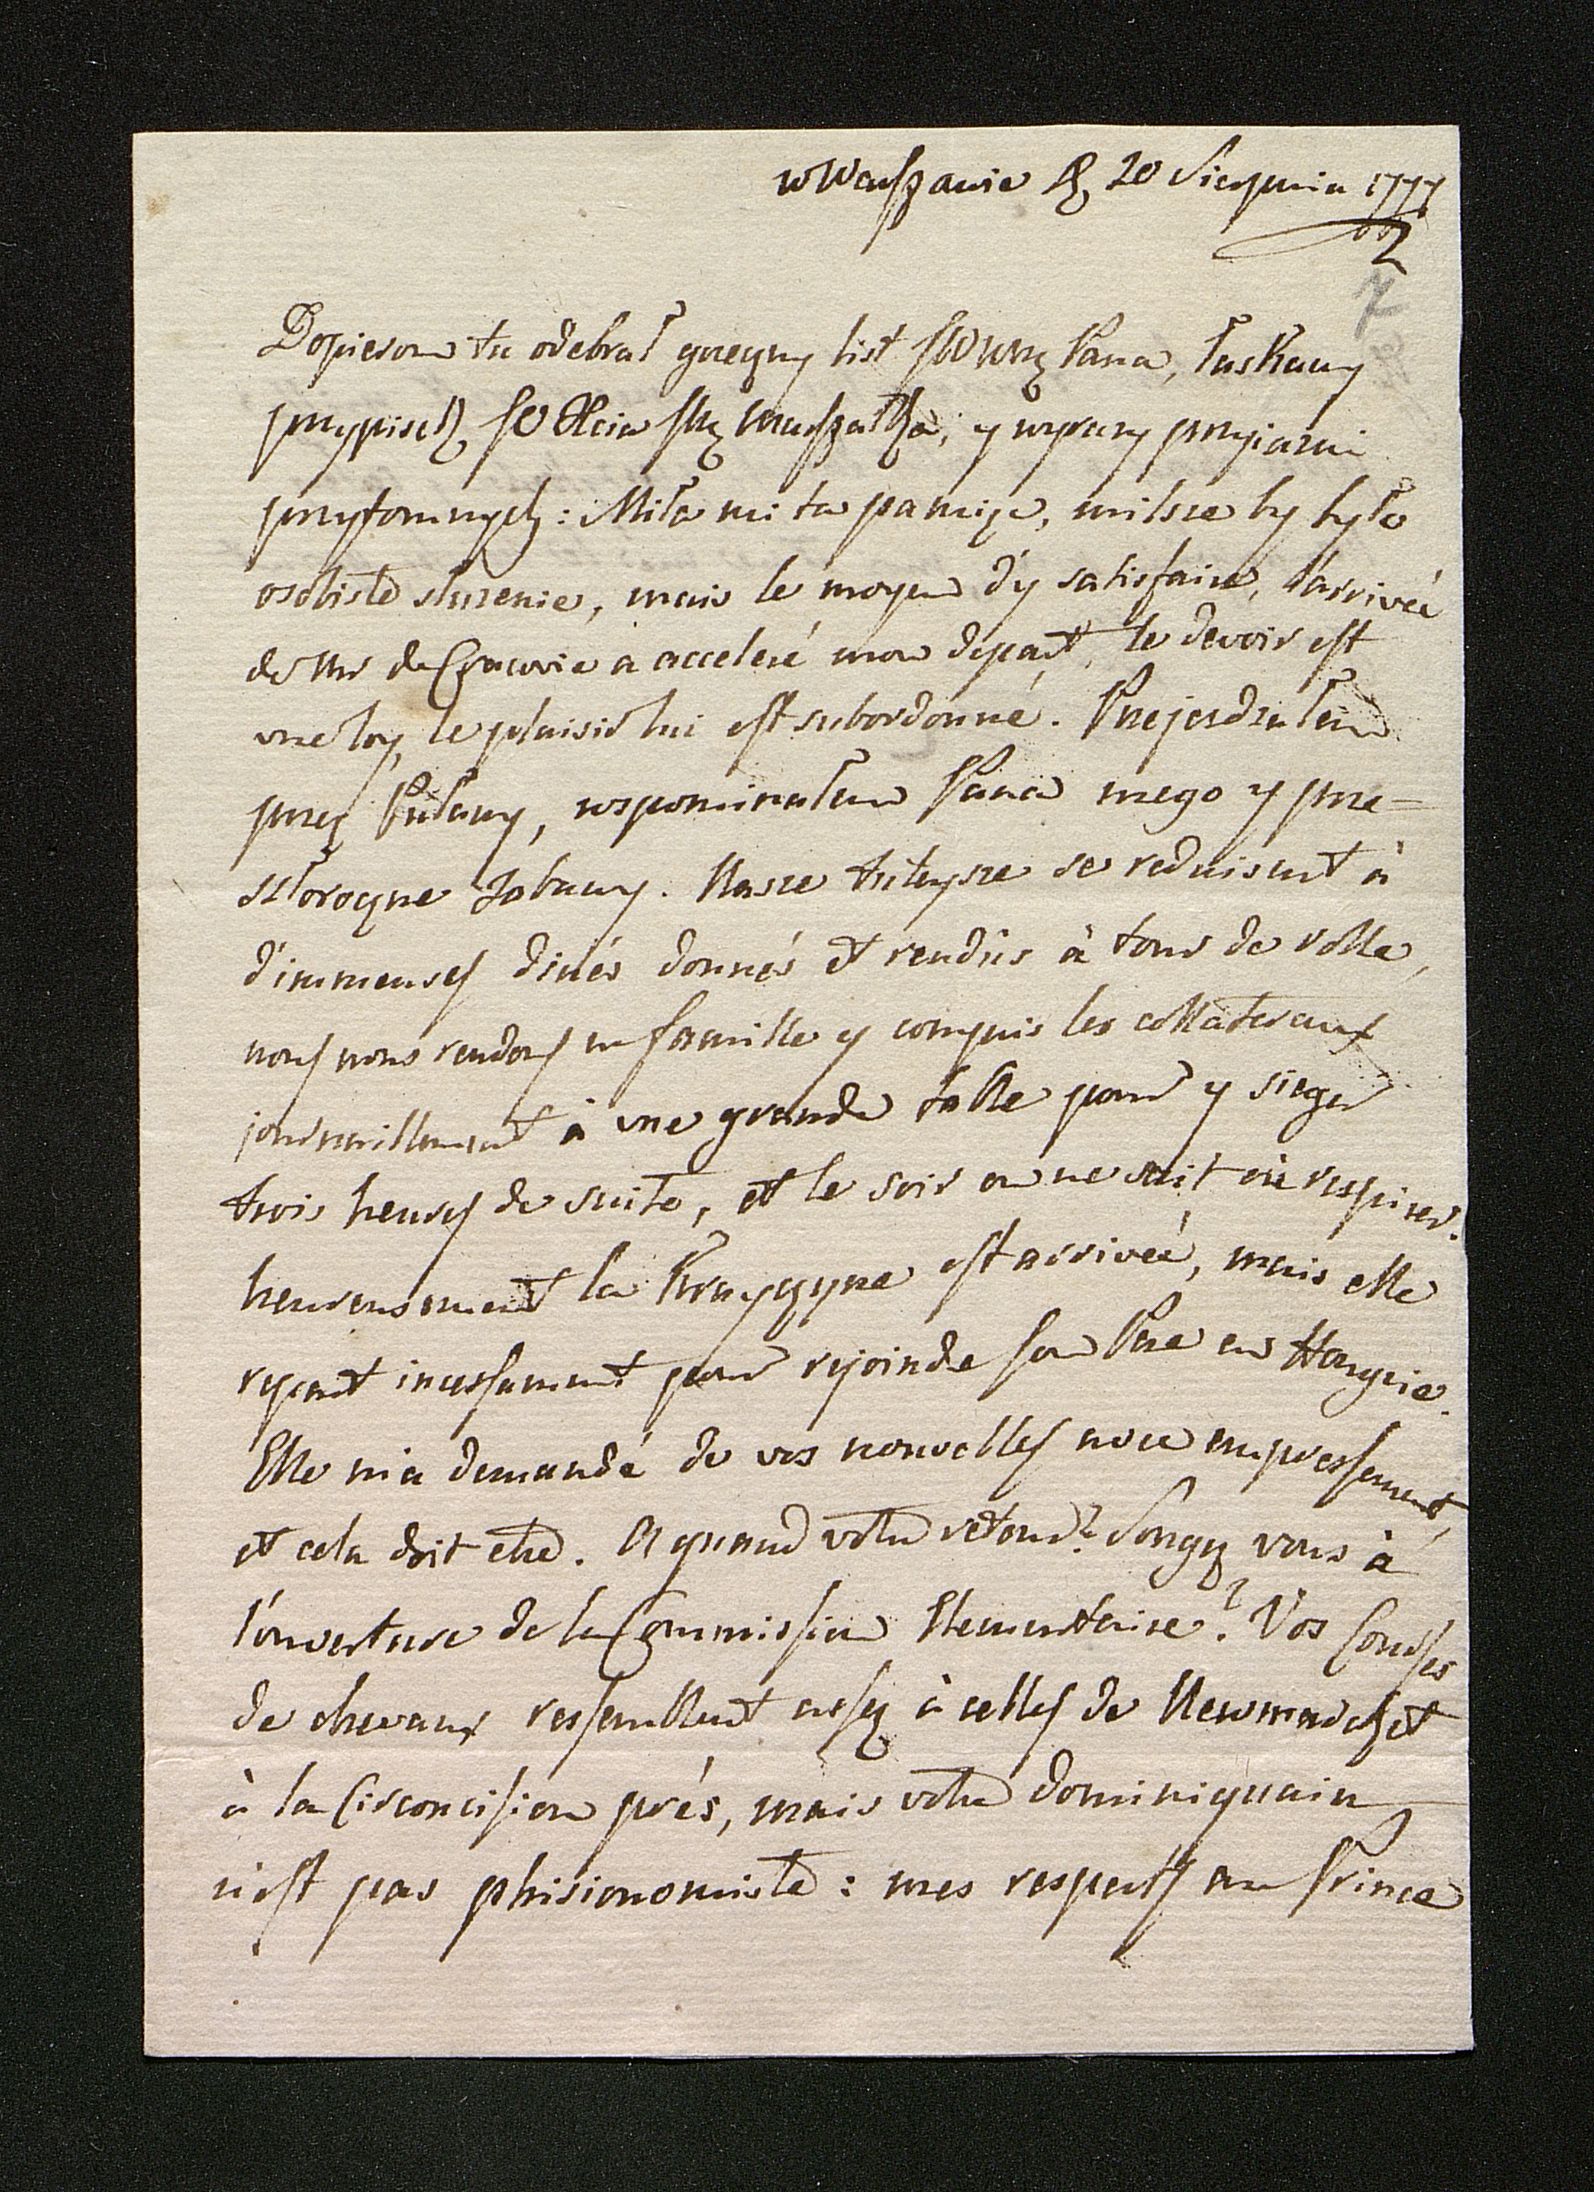 w Warszawie d 20 Sierpnia 1777
7
Dopierom tu odebrał grzeczny list JWWMg Pana, łaskawy
przypisek JO Xcia Jmci Marszałka, y wyrazy przyiazni
przytomnych: Miła mi ta pamięc, milsze by było
osobiste słuzenie, mais le moyen d'y satisfaire, l'arrivée
de Mr de Cracovie a acceleré mon depart, le devoir est
une loy, le plaisir lui est subordonné. Przejezdzałem
przez Puławy, wspominałem Pana mego y prze-
szłoroczne zabawy. Nasze tuteysze se reduisent à
d'immenses dinés donnés et rendûs à tour de rolle,
nous nous rendons en famille y compris les collateraux
journaillement à une grande table pour y sieger
trois heures de suite, et le soir on ne sait où respirer.
heureusement la Krayczyne est arriveé, mais elle
repart incessament pour rejoindre son Pere en Hongrie.
Elle m'a demandé de vos nouvelles avec empressement,
et cela doit etre. A quand votre retour? Songez vous à
l'ouverture de la Commission Elementaire? Vos Courses
de chevaux ressemblent assez à celles de Newmarchet
à la Circoncision prés, mais votre dominiquain
n'est pas phisionomiste: mes respects au Prince